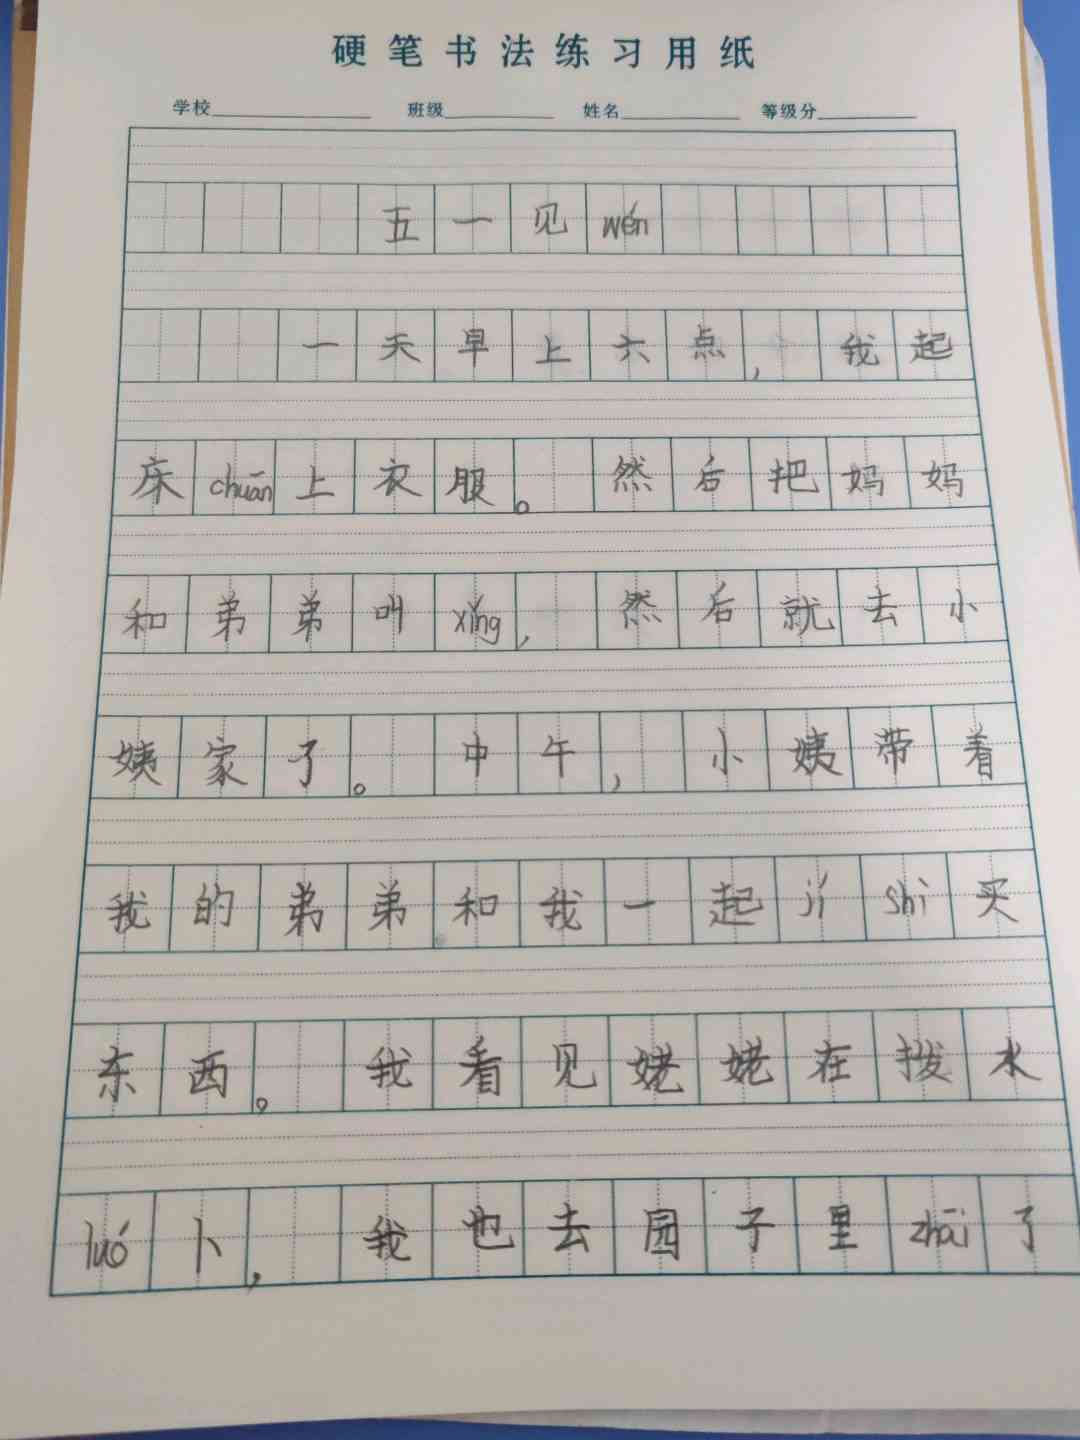 硬笔书法练习用纸
学校 班级 姓名 等级分
五一见wén
一天早上六点,我起
床chuān上衣服。然后把妈妈
和弟弟叫xǐng,然后就去小
姨家了。中午,小姨带着
我的弟弟和我一起jí shì买
东西。我看见姥姥在拨水
luó卜,我也去园子里zhāi了